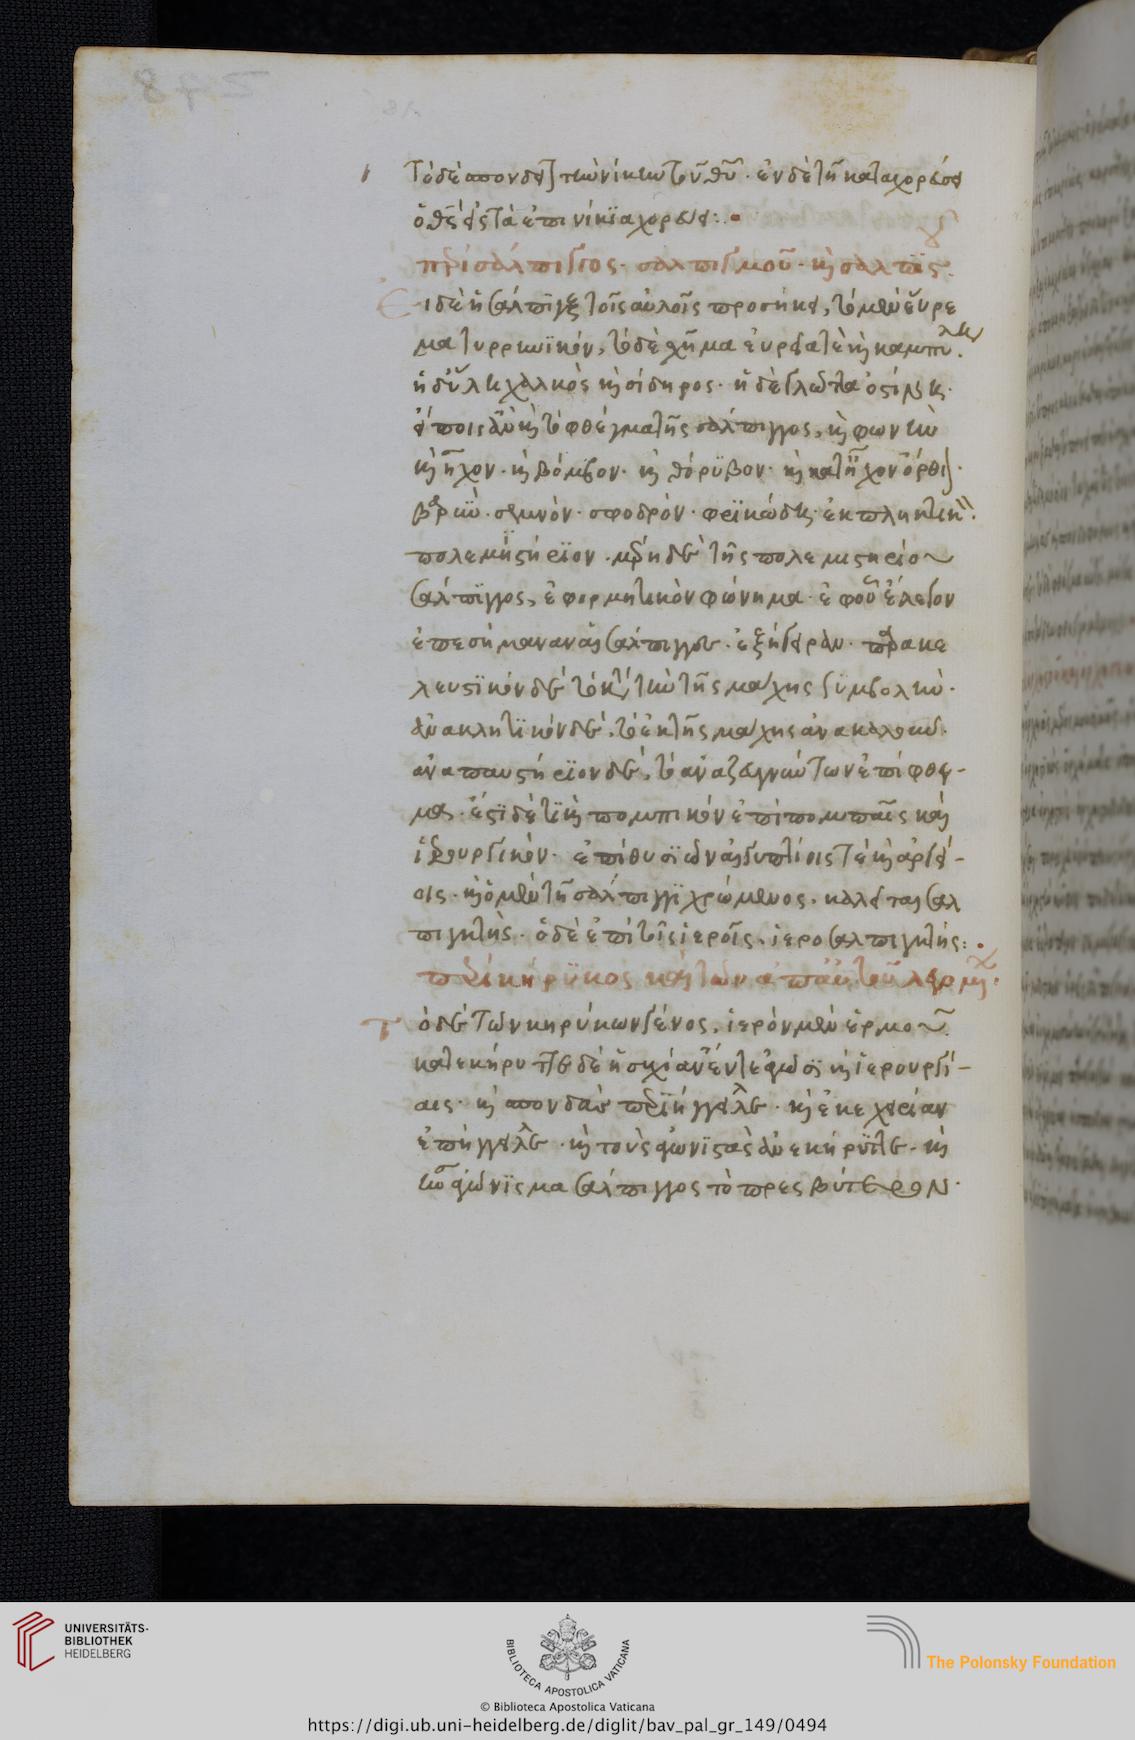 Τὸ δὲ σπονδεῖον τὴν νίκην τοῦ θεοῦ. ἐν δὲ τῆ καταχορεύσει
ὁ θεὸς ἐς τὰ ἐπινίκια χορεύει:
περὶ σάλπιγγος. σαλπισμοῦ. καὶ σαλπιστ
Εἰ δὲ ἡ σάλπιγξ τοῖς αὐλοῖς προσήκει, τὸ μὲν εὕρε
μα τυρρηνικόν, τὸ δὲ σχῆμα εὐθεῖά τε καὶ καμπύλη.
ἡ δ' ὕλη χαλκὸς καὶ σίδηρος. ἡ δὲ γλῶττα ὀστίνη.
εἴποις ἂν καὶ τὸ φθέγμα τῆς σάλπιγγος, καὶ φωνὴν
καὶ ἦχον. καὶ βόμβον. καὶ θόρυβον. καὶ ὄρθιον.
βαρὺ. σεμνὸν. σφοδρὸν. φρικώδη. ἐκπληκτικ
πολεμιστήριον. μέρη δὲ τῆς πολεμιστηρίου
σάλπιγγος, ἐφορμητικὸν φώνημα. ἐφ' οὗ ἔλεγον
ἐπεσήμαναν αἱ σάλπιγγες. ἐξήγειραν. παρακε
λευστικὸν δὲ τὸ κατὰ τὴν τῆς μάχης συμβολὴν.
ἀνακλητικὸν δὲ, τὸ ἐκ τῆς μάχης ἀνακαλοῦν.
ἀναπαυστήριον δὲ, τὸ ἀναζευγνύντων ἐπίφθεγ-
μα. ἔστι δέ τι καὶ πομπικὸν ἐπὶ πομπαῖς καὶ
ἱερουργικὸν. ἐπὶ θυσιῶν αἰγυπτίοις τὲ καὶ ἀργεί-
οις. καὶ ὁ μὲν τῆ σάλπιγγι χρώμενος, καλεῖται σαλ
πιγκτὴς. ὁ δὲ ἐπὶ τοῖς ἱεροῖς, ἱεροσαλπιγκτής:
περὶ κήρυκος καὶ τῶν ὑπ' αὐτοῦ
Τὸ δὲ τῶν κηρύκων γένος, ἱερὸν μὲν ἑρμοῦ.
κατεκήρυττε δὲ ἡσυχίαν ἔν τε ἀγῶσι καὶ ἱερουργί-
αις. καὶ σπονδὰς περιήγγελλε. καὶ ἐκεχειρίαν
ἐπήγγελλε. καὶ τοὺς ἀγωνιστὰς ἀνεκήρυττε. καὶ
ἦν ἀγώνισμα σάλπιγγος τὸ πρεσβύτερον.
UNIVERSITÄTS-
BIBLIOTHEK
HEIDELBERG
BIBLIOTECA APOSTOLICA VATICANA
The Polonsky Foundation
© Biblioteca Apostolica Vaticana
https://digi.ub.uni-heidelberg.de/diglit/bav_pal_gr_149/0494